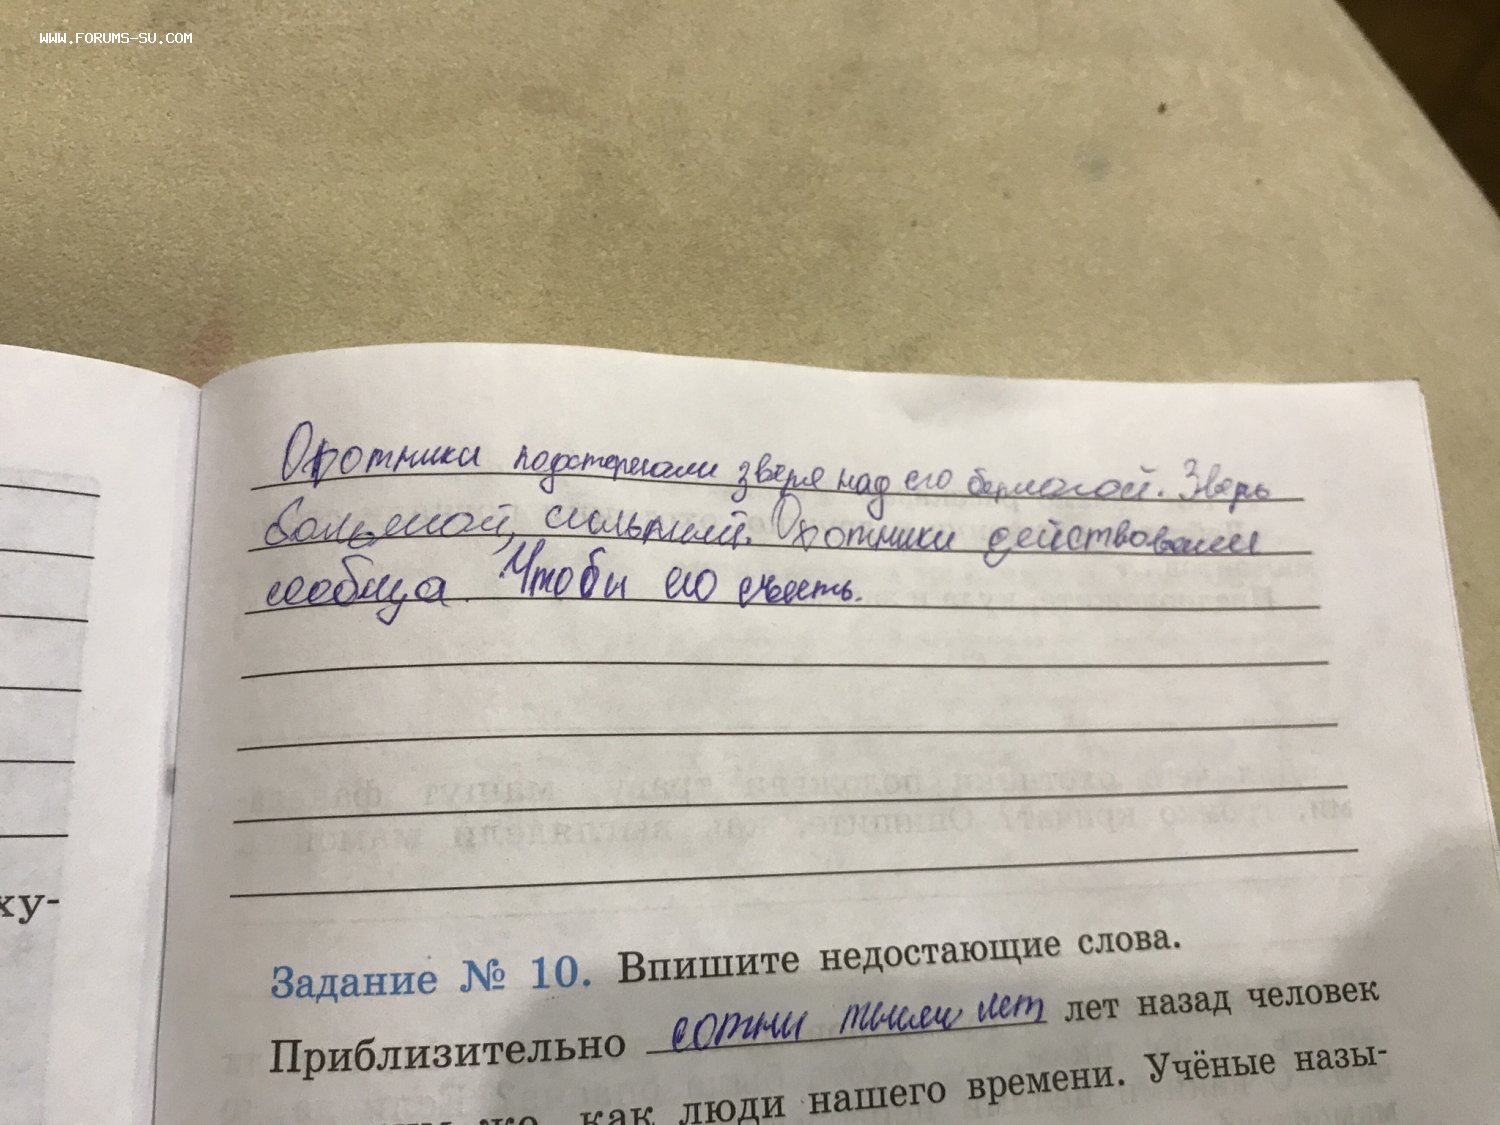 WWW.FORUMS-SU.COM
Охотники подстерегали зверя над его берлогой. Зверь
большой, сильный. Охотники действовали
сообща. Чтобы его съесть.
ху-
Задание № 10. Впишите недостающие слова.
Приблизительно сотни тысяч лет лет назад человек
как люди нашего времени. Учёные назы-